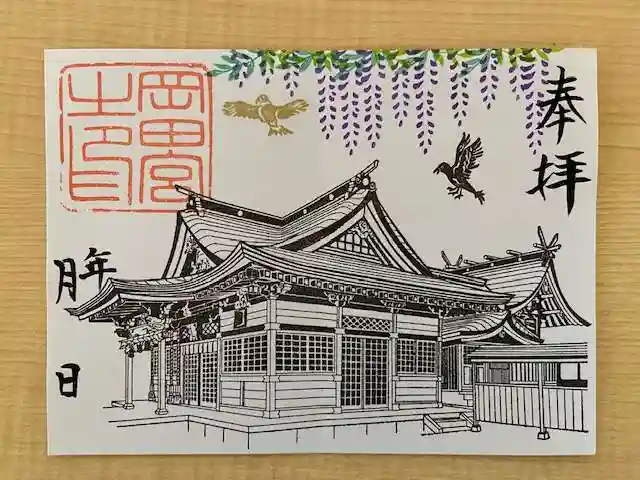 奉拝
岡田宮
之印
年
月
日